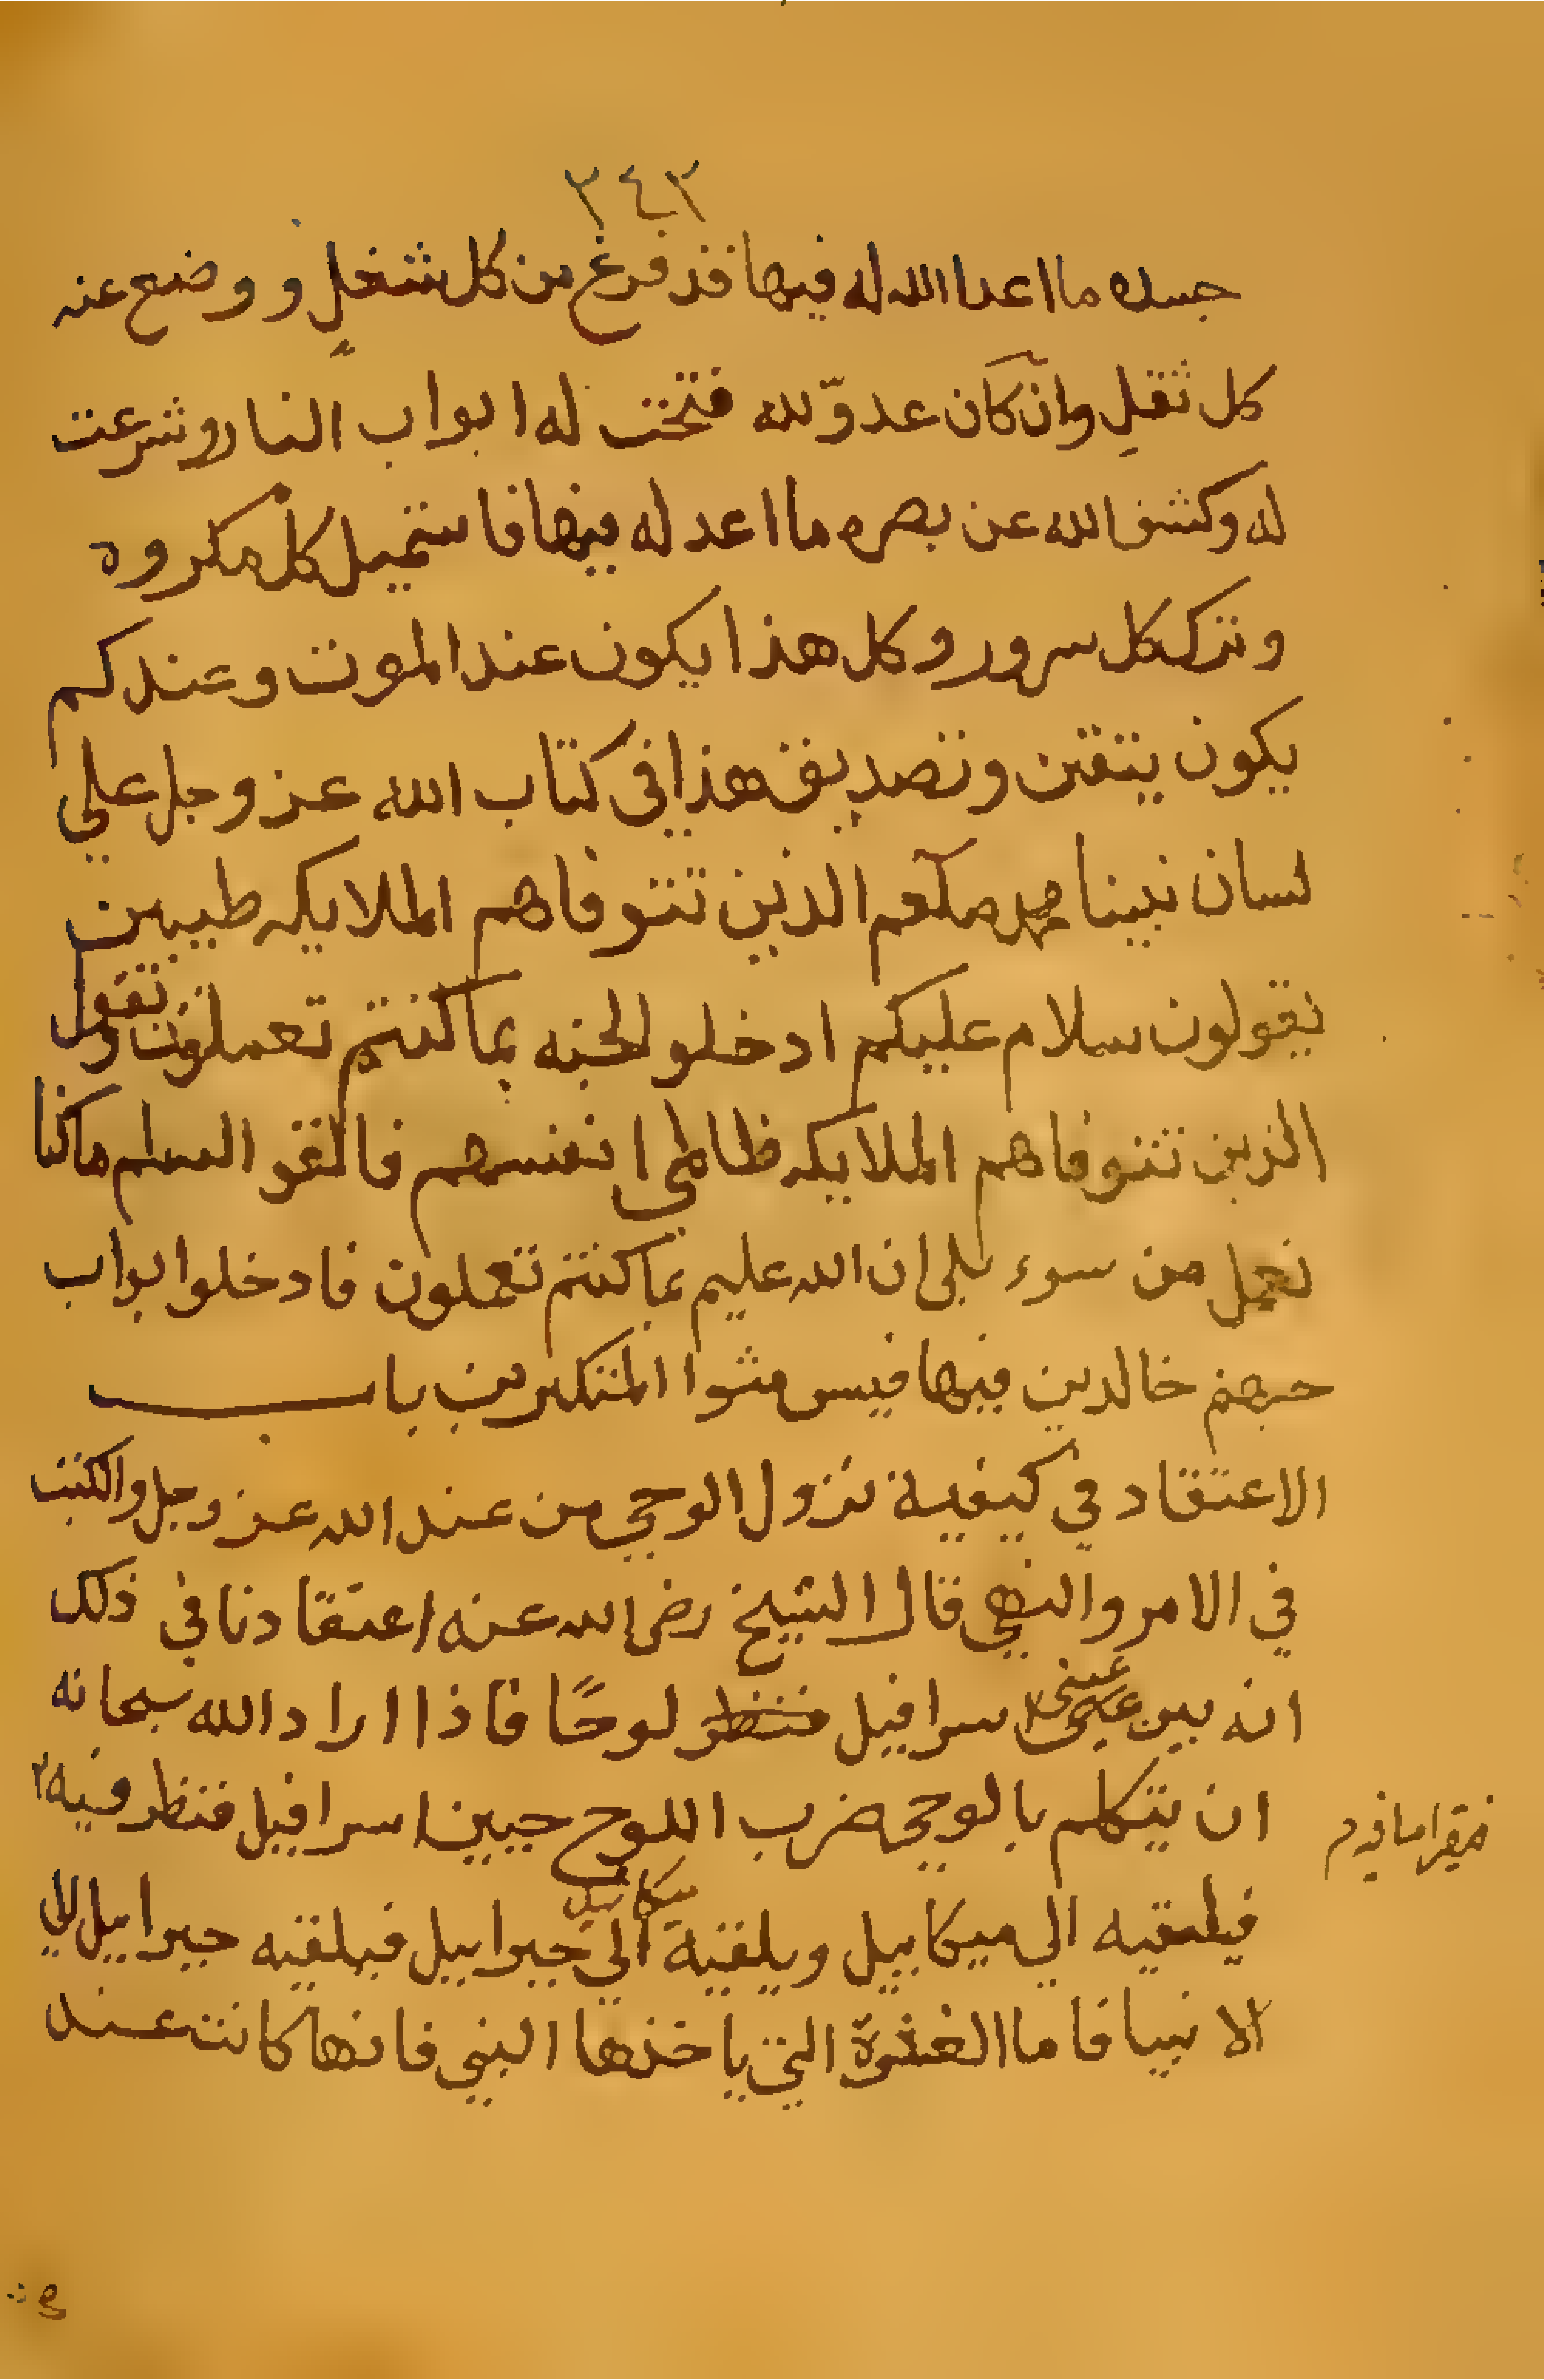 ٣٤٣
جسده ما اعدا الله له فيها قد فرغ من كل شغل و وضع عنه
كل ثقل وان كان عدوّ لله فتحت له ابواب النار وشرعت
له وكشف الله عن بصره ما اعد له فيها فاستميل كل مكروه
وترك كل سرور وكل هذا يكون عند الموت وعندكم
يكون يتقن وتصديق هذا في كتاب الله عز وجل علي
لسان نبينا محمد صلعم الذين تتوفاهم الملايكه طيبين
يقولون سلام عليكم ادخلو الجنه بما كنتم تعملون وتقول
الذين تتوفاهم الملايكه ظالمي انفسهم فالقو السلم ماكنا
نعمل من سوء بلى ان الله عليم بما كنتم تعملون فادخلوا بواب
جهنم خالدين فيها فبس مثوا المتكبرين باب
الاعتقاد في كيفية نزول الوحي من عند الله عز وجل والكتب
في الامر والنهي قال الشيخ رضى الله عنه اعتقادنا في ذلك
انه بين عيني اسرافيل لوحًا فاذا اراد الله سبحانه
ان يتكلم بالوحي ضرب اللوح جبين اسرافيل فنظر فيه
فيقرا ما فيه
فيلقيه الي ميكاييل ويلقيه ميكاييل الي جبراييل فيلقيه جبراييل الي
الانبيا فاما الغشوة التي ياخذها النبي فانها كانت عند